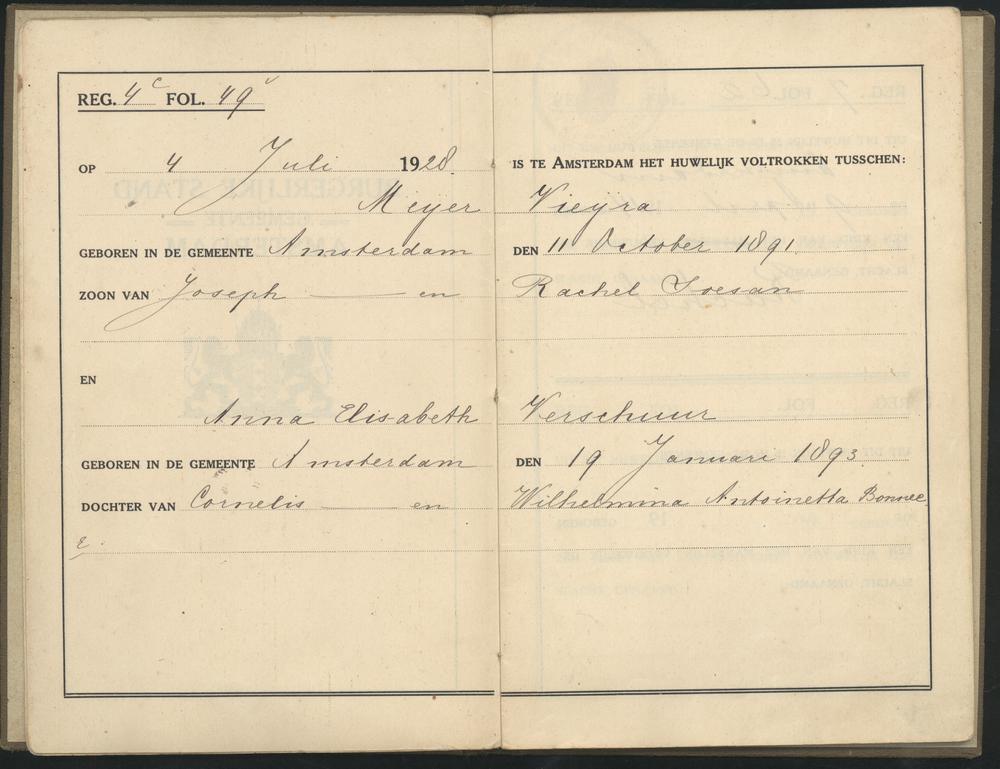 REG. 4c FOL. 49v
OP 4 Juli 1928. IS TE AMSTERDAM HET HUWELIJK VOLTROKKEN TUSSCHEN:
Meyer Vieyra
GEBOREN IN DE GEMEENTE Amsterdam DEN 11 October 1891
ZOON VAN Joseph en Rachel
EN
Anna Elisabeth Verschuur
GEBOREN IN DE GEMEENTE Amsterdam DEN 19 Januari 1893.
DOCHTER VAN Cornelis en Wilhelmina Antoinetta